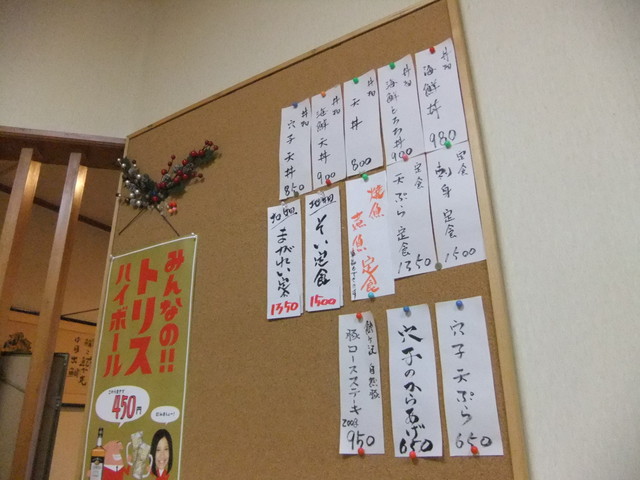 丼物
海鮮丼
980
丼物
海鮮とろろ丼
900
丼物
天丼
800
丼物
海鮮天丼
900
丼物
穴子天丼
850
定食
刺身定食
1500
定食
天ぷら定食
1350
焼魚
煮魚定食
そい定食
1500
まがれい定食
1350
穴子天ぷら
650
穴子のからあげ
650
自然豚
豚ロースステーキ
200g
950
みんなの!!
トリス
ハイボール
450円